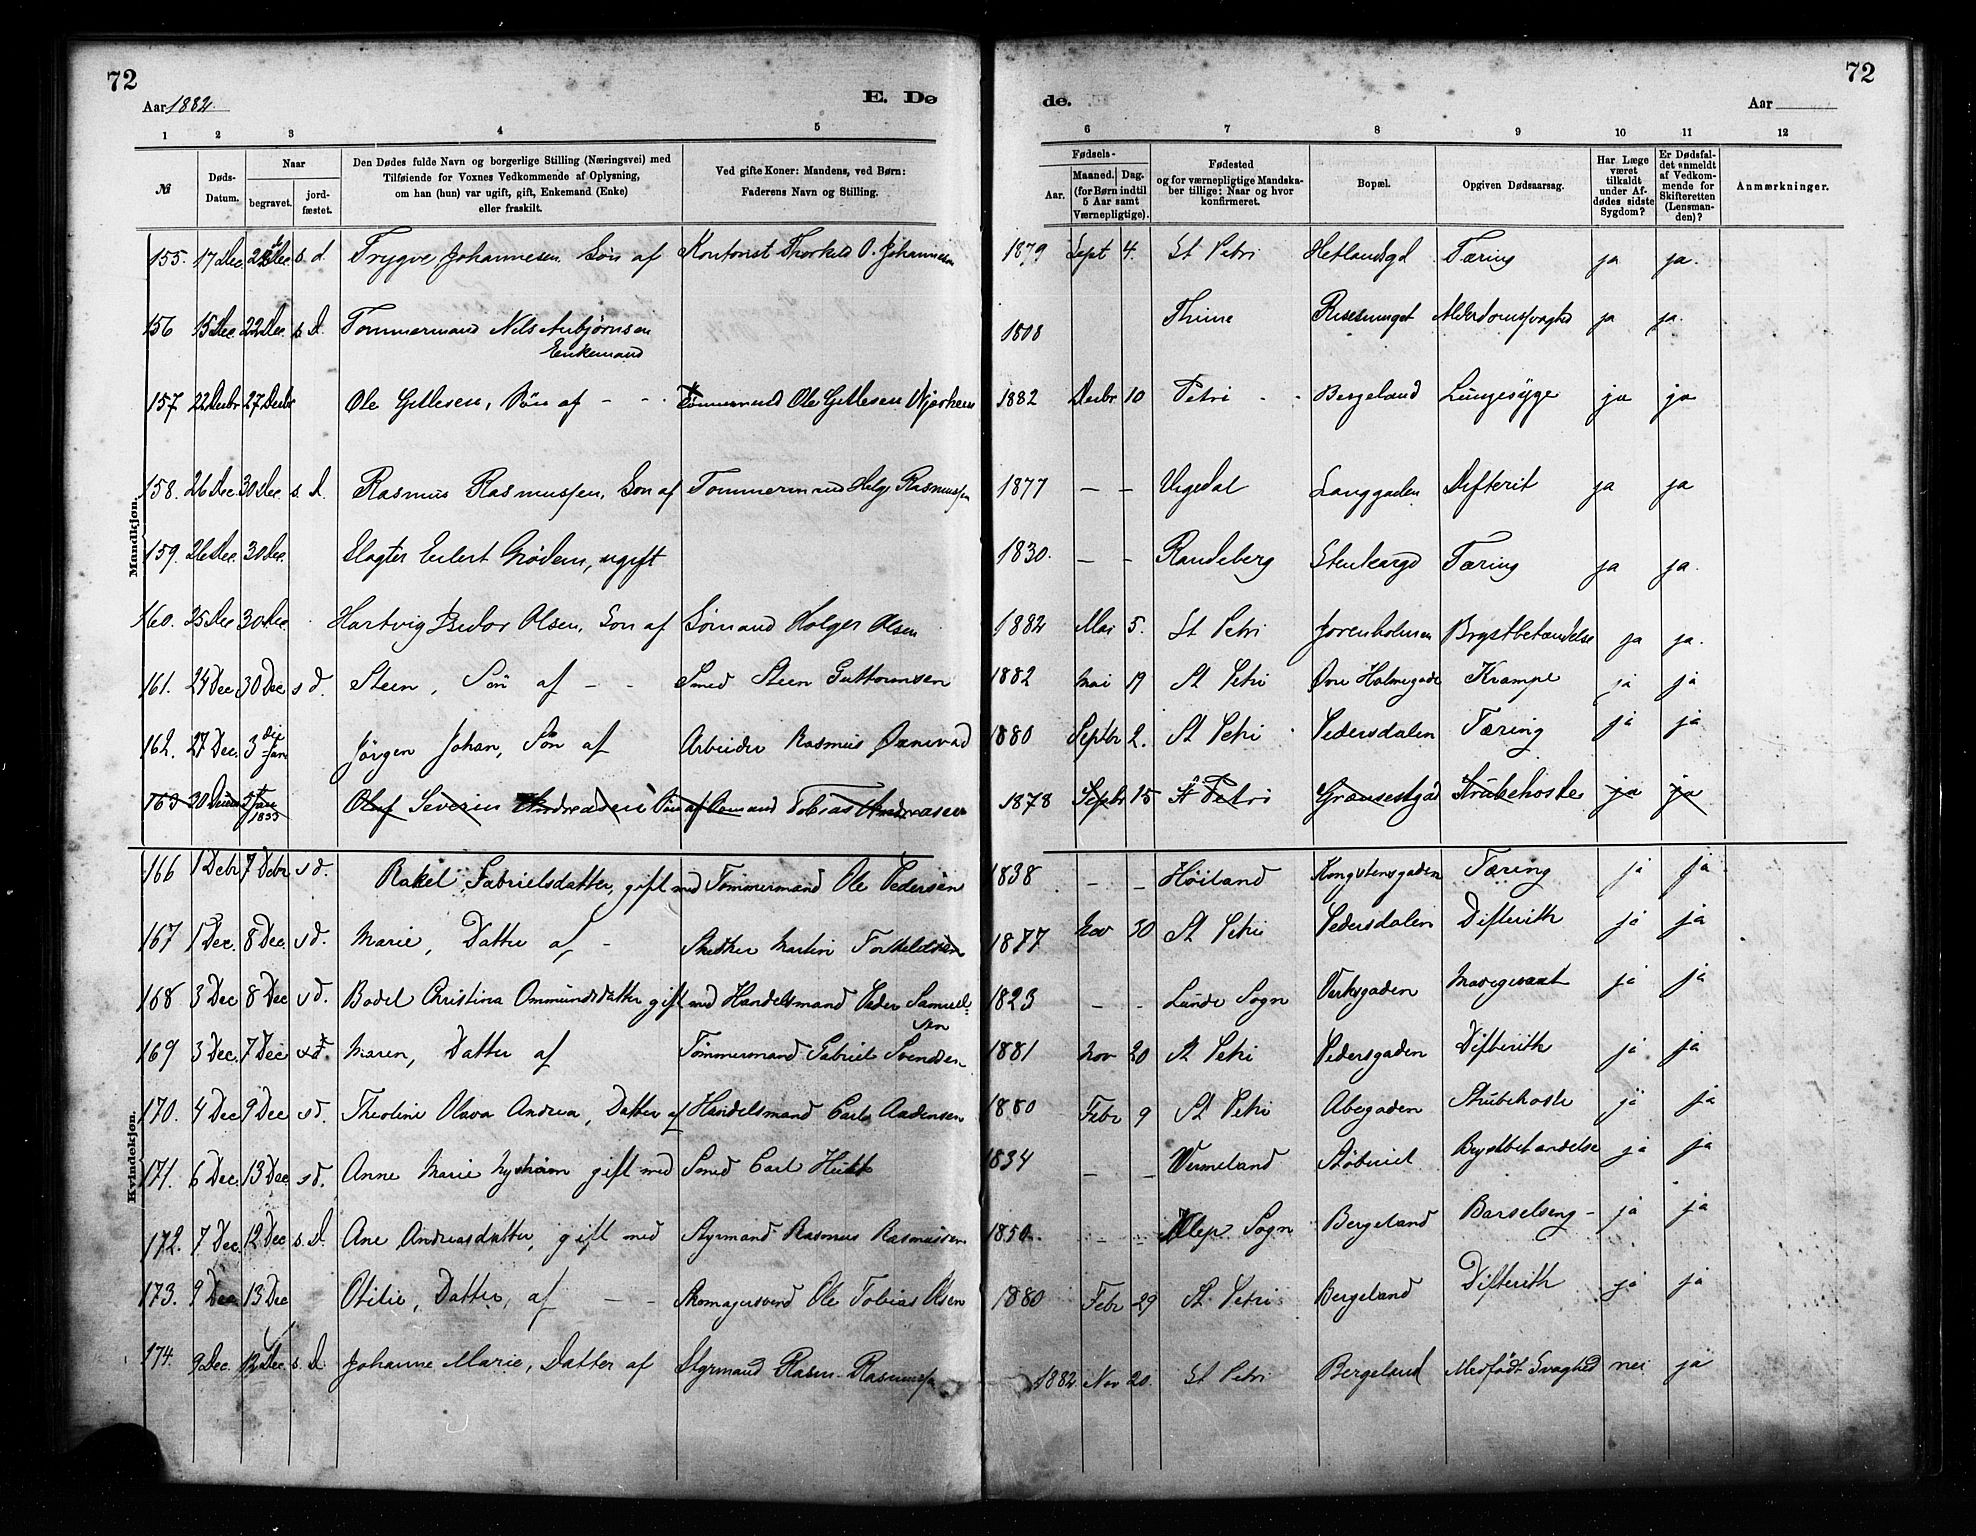 72
72
Aar 1882.
E. Dø
de.
Aar
1 2 3 4 5 6 7 8 9 10 11 12
№
Døds-Datum.
Naar
begravet.
jord-fæstet.
Den Dødes fulde Navn og borgerlige Stilling (Næringsvei) med
Tilføiende for Voxnes Vedkommende af Oplysning,
om han (hun) var ugift, gift, Enkemand (Enke)
eller fraskilt.
Ved gifte Koner: Mandens, ved Børn:
Faderens Navn og Stilling.
Fødsels-
Aar.
Maaned. Dag.
(for Børn indtil
5 Aar samt
Værnepligtige).
Fødested
og for værnepligtige Mandska-
ber tillige: Naar og hvor
konfirmeret.
Bopæl.
Opgiven Dødsaarsag.
Har Læge
været
tilkaldt
under Af-
dødes sidste
Sygdom?
Er Dødsfal-
det anmeldt
af Vedkom-
mende for
Skifteretten
(Lensman-
den)?
Anmærkninger.
Mandkjøn.
155. 17 Dec. Dec. s. d. Trygve Johannesen Søn af Kontorist Thorkild O. Johannesen 1879 Sept 4. St Petri Hetlandsgd Tæring ja ja.
156 15 Dec. 22 Dec. s. d. Tømmermand Nils Asbjørnsen 1808 Thime Alderdomssvaghed ja ja.
Enkemand
157. 22 Decbr 27 Decbr Ole Gitlesen, Søn af - - Tømmermand Ole Gitlesen 1882 Decbr 10 Petri - - Bergeland Lungesyge ja ja
158. 26 Dec. 30 Dec. s. d. Rasmus Rasmussen, Søn af Tømmermand Helge Rasmussen 1877 - - Langgaden Difterit ja ja
159. 26 Dec. 30 Dec. Slagter Eilert Grødem, ugift 1830. - - Randeberg Stenkargd Tæring ja ja.
160. 25 Dec 30 Dec. Hartvig Olsen, Søn af Sømand Holger Olsen 1882 Mai 5. St Petri Jorenholmen Brystbetændelse ja ja.
161. 24 Dec. 30 Dec s d. Steen, Søn af - - Smed Steen Guttormsen 1882 Mai 19 St Petri Øvre Holmegade Krampe ja ja
162. 27 Dec. 3 die Jan Jörgen Johan, Søn af Arbeider Rasmus 1880 Septbr 2. St Petri Pedersdalen Tæring ja ja
163 20 2 Jan 1883 Oluf Severin Andreasen Søn af Sømand Tobias Andreasen 1878 Septbr 15 St Petri Grønsestgd Strubehoste ja ja
Kvindekjøn.
166 1 Debr 7 Debr s d. Rakel Gabrielsdatter, gift med Tømmermand Ole Pedersen 1838 - - Høiland Kongstensgaden Tæring ja ja
167 1 Dec. 8 Dec. s d. Marie, Datter af - Martin Torkeldsen 1877 Nov 30 St Petri Pedersdalen Difterith ja ja
168 3 Dec 8 Dec s d. Bodel Christina Ommundsdatter gift med Handelsmand Peder Samuel-
sen 1823 - - Lunde Sogn Verksgaden ja ja
169 3 Dec. 7 Dec s d. Maren, Datter af Tømmermand Gabriel Svendsen 1881 Nov 20 St Petri Pedersgaden Difterith ja ja
170. 4 Dec 9 Dec s d. Theoline Olava Andrea, Datter af Handelsmand Carl Aadensen 1880 Febr 9 St Petri Strubehoste ja ja
171. 6 Dec. 13 Dec. s d. Anne Marie Nystrøm gift med Smed Carl 1834 - - Vermeland Støberiet Brystbetændelse ja ja
172. 7 Dec 12 Dec s. d. Ane Andreasdatter, gift med Styrmand Rasmus Rasmussen 1850. - - Klep Sogn Bergeland Barselseng - ja ja
173. 9 Dec 13 Dec Otilie, Datter, af - - Skomagersvend Ole Tobias Olsen 1880 Febr 29 St Petri Bergeland Difterith ja ja
174. 9 Dec. 12 Dec s. d. Johanne Marie, Datter af Styrmand Rasm. Rasmussen 1882 Nov 20. St Petri Bergeland Medfødt Svaghed nei ja